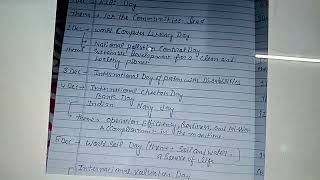 Day
them → Let the Communities Lead
2 Dec → World Computer Literacy Day
→ National Pollution Control Day
them → Sustainable development for a clean and
healthy planet
3 Dec → International Day of with Disabilities
4 Dec → International Cheetah Day
Bank Day
Indian Navy Day
theme → operation Efficiency, Readiness, and
Accomplishment in the maritime
5 Dec → World Soil Day (theme → Soil and water -
a source of life
International Volunteer Day